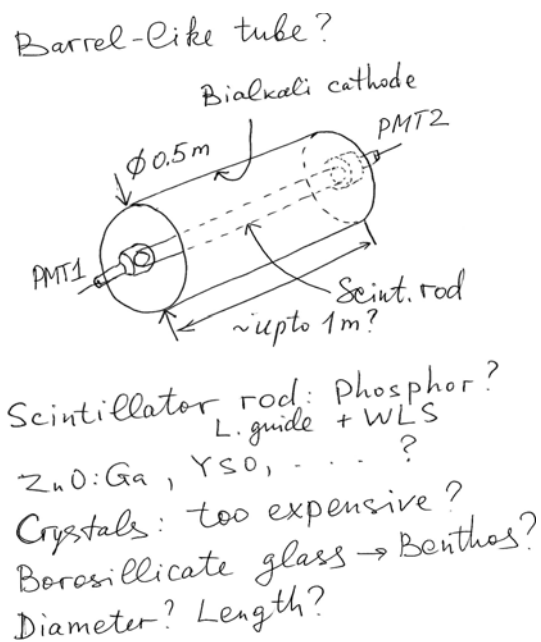 Barrel-like tube?
Bialkali cathode
PMT2
Ø 0.5m
PMT1
Scint. rod
~upto 1m?
Scintillator rod: Phosphor?
L. guide + WLS
ZnO:Ga, YSO, . . . . ?
Crystals: too expensive?
Borosillicate glass → Benthos?
Diameter? Length?